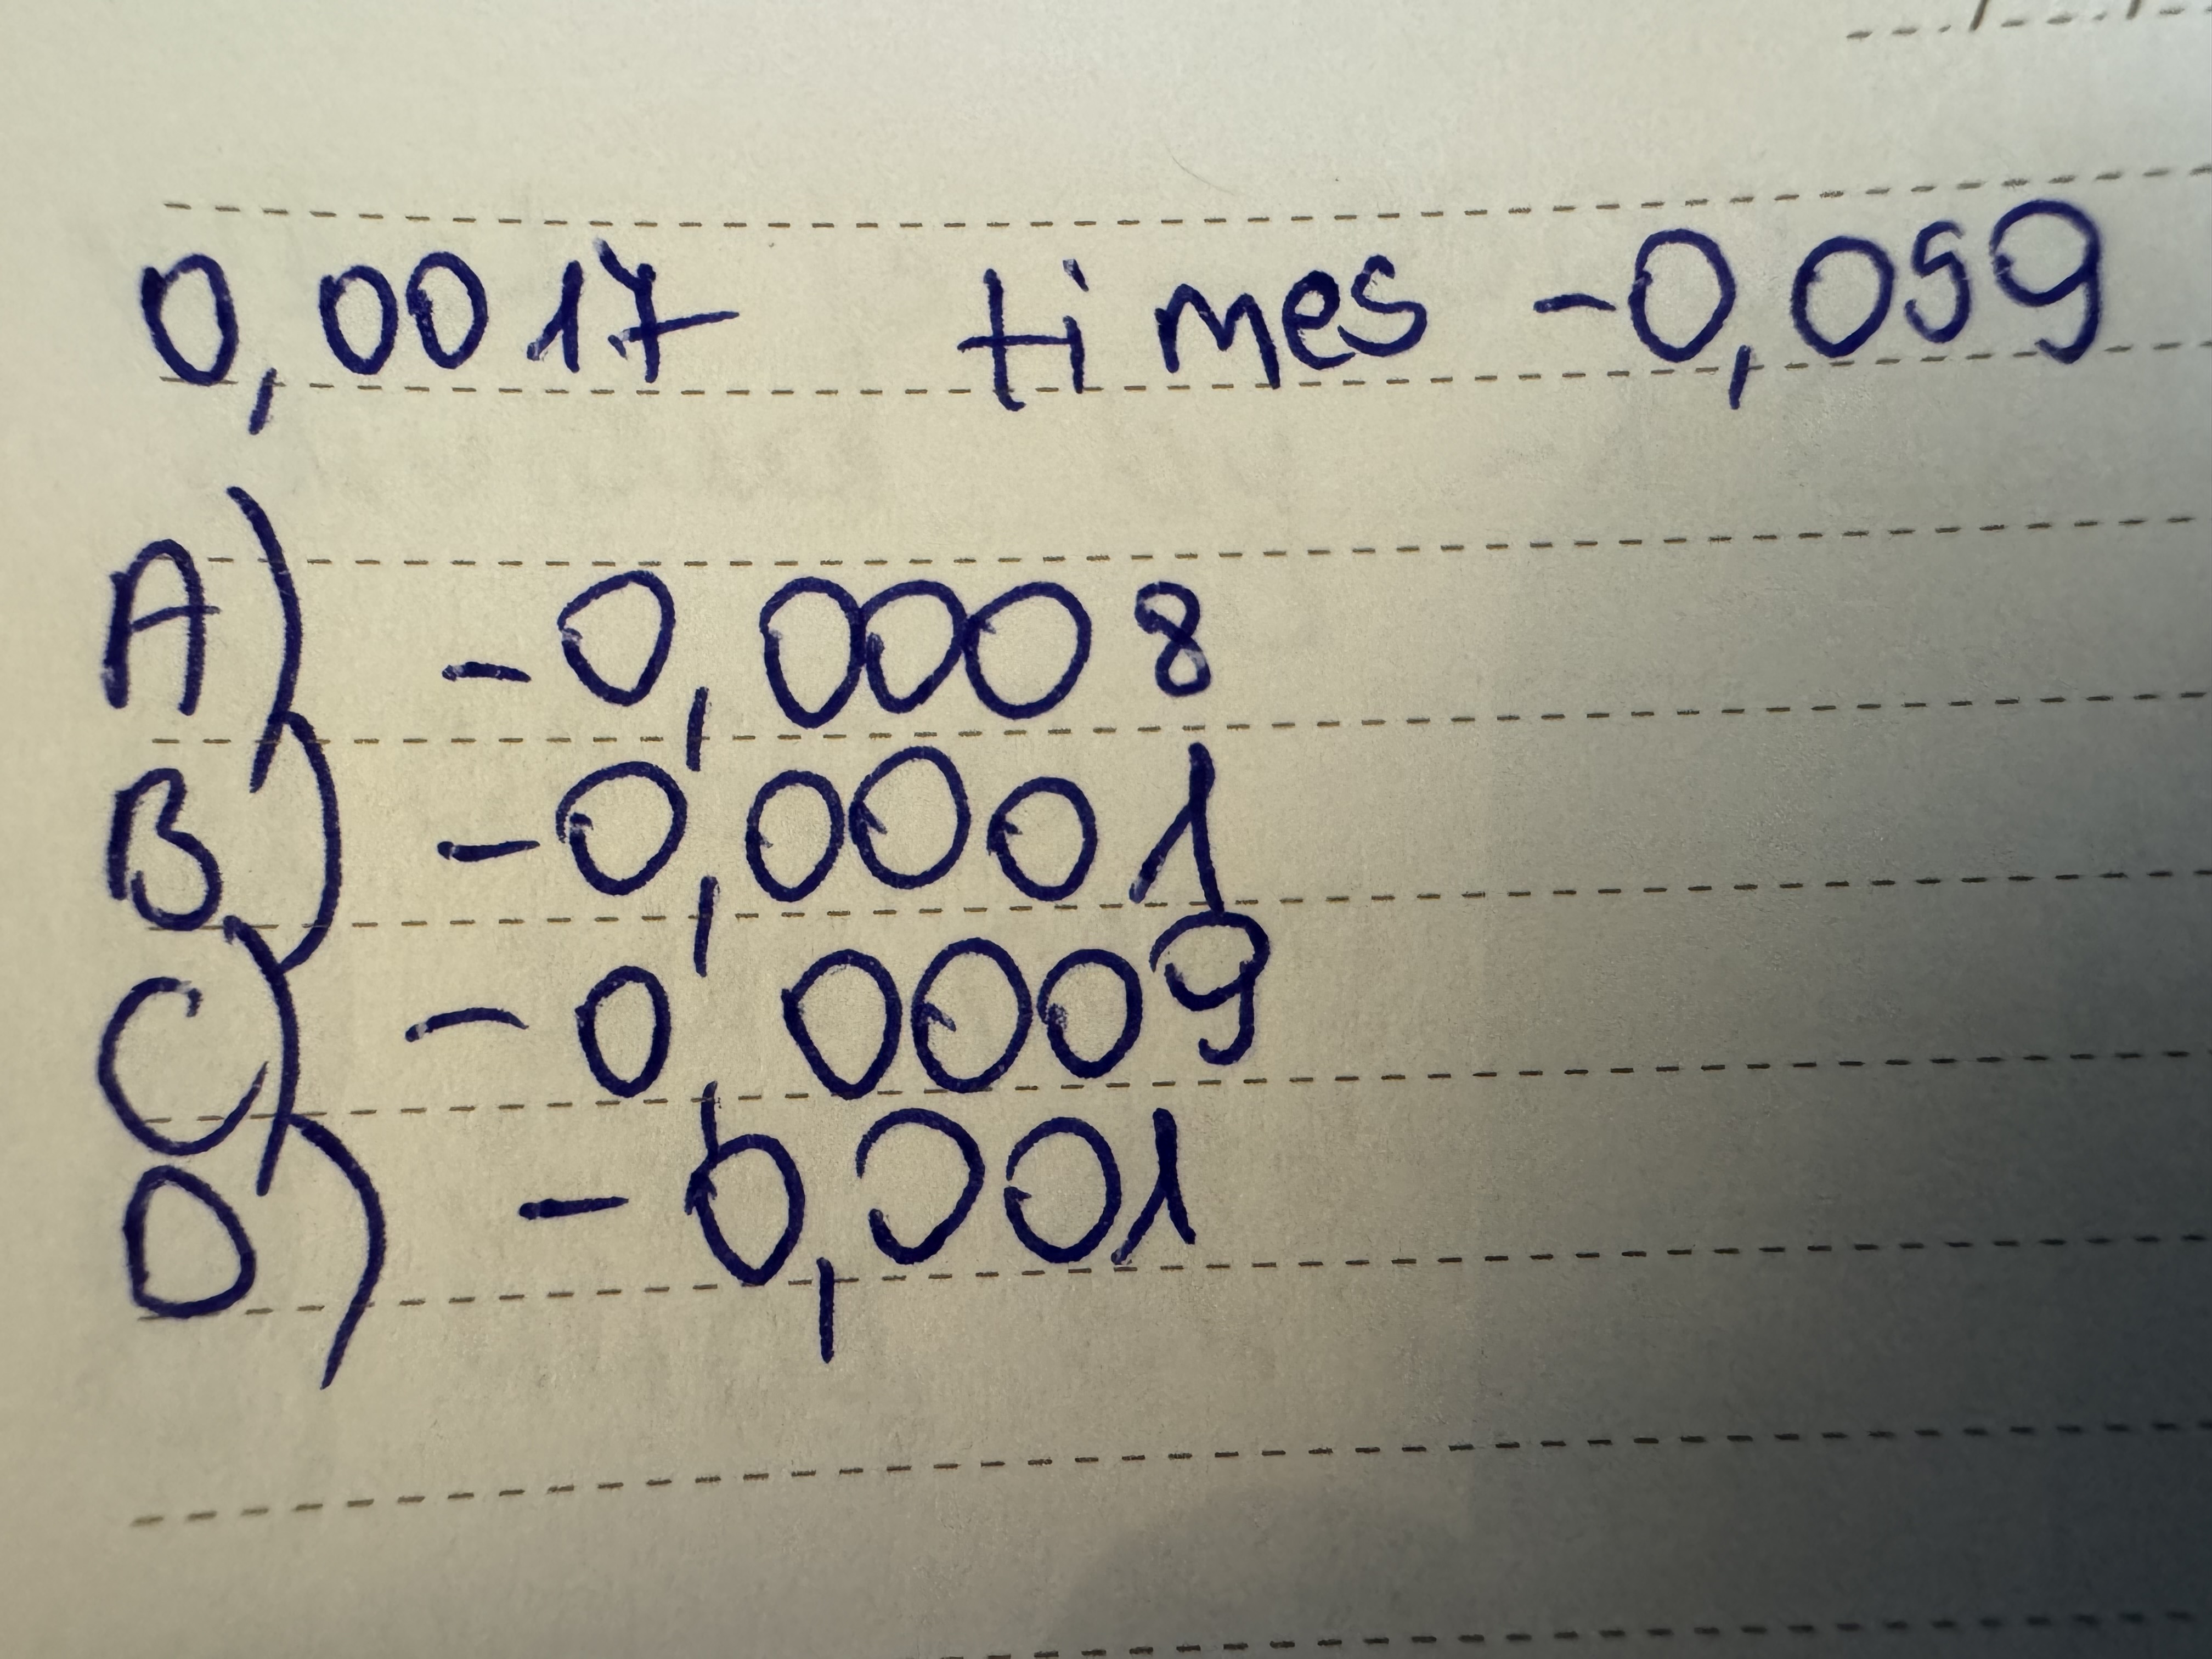 0,0017 times -0,059
A) -0,0008
B) -0,0001
C) -0,0009
D) -0,001